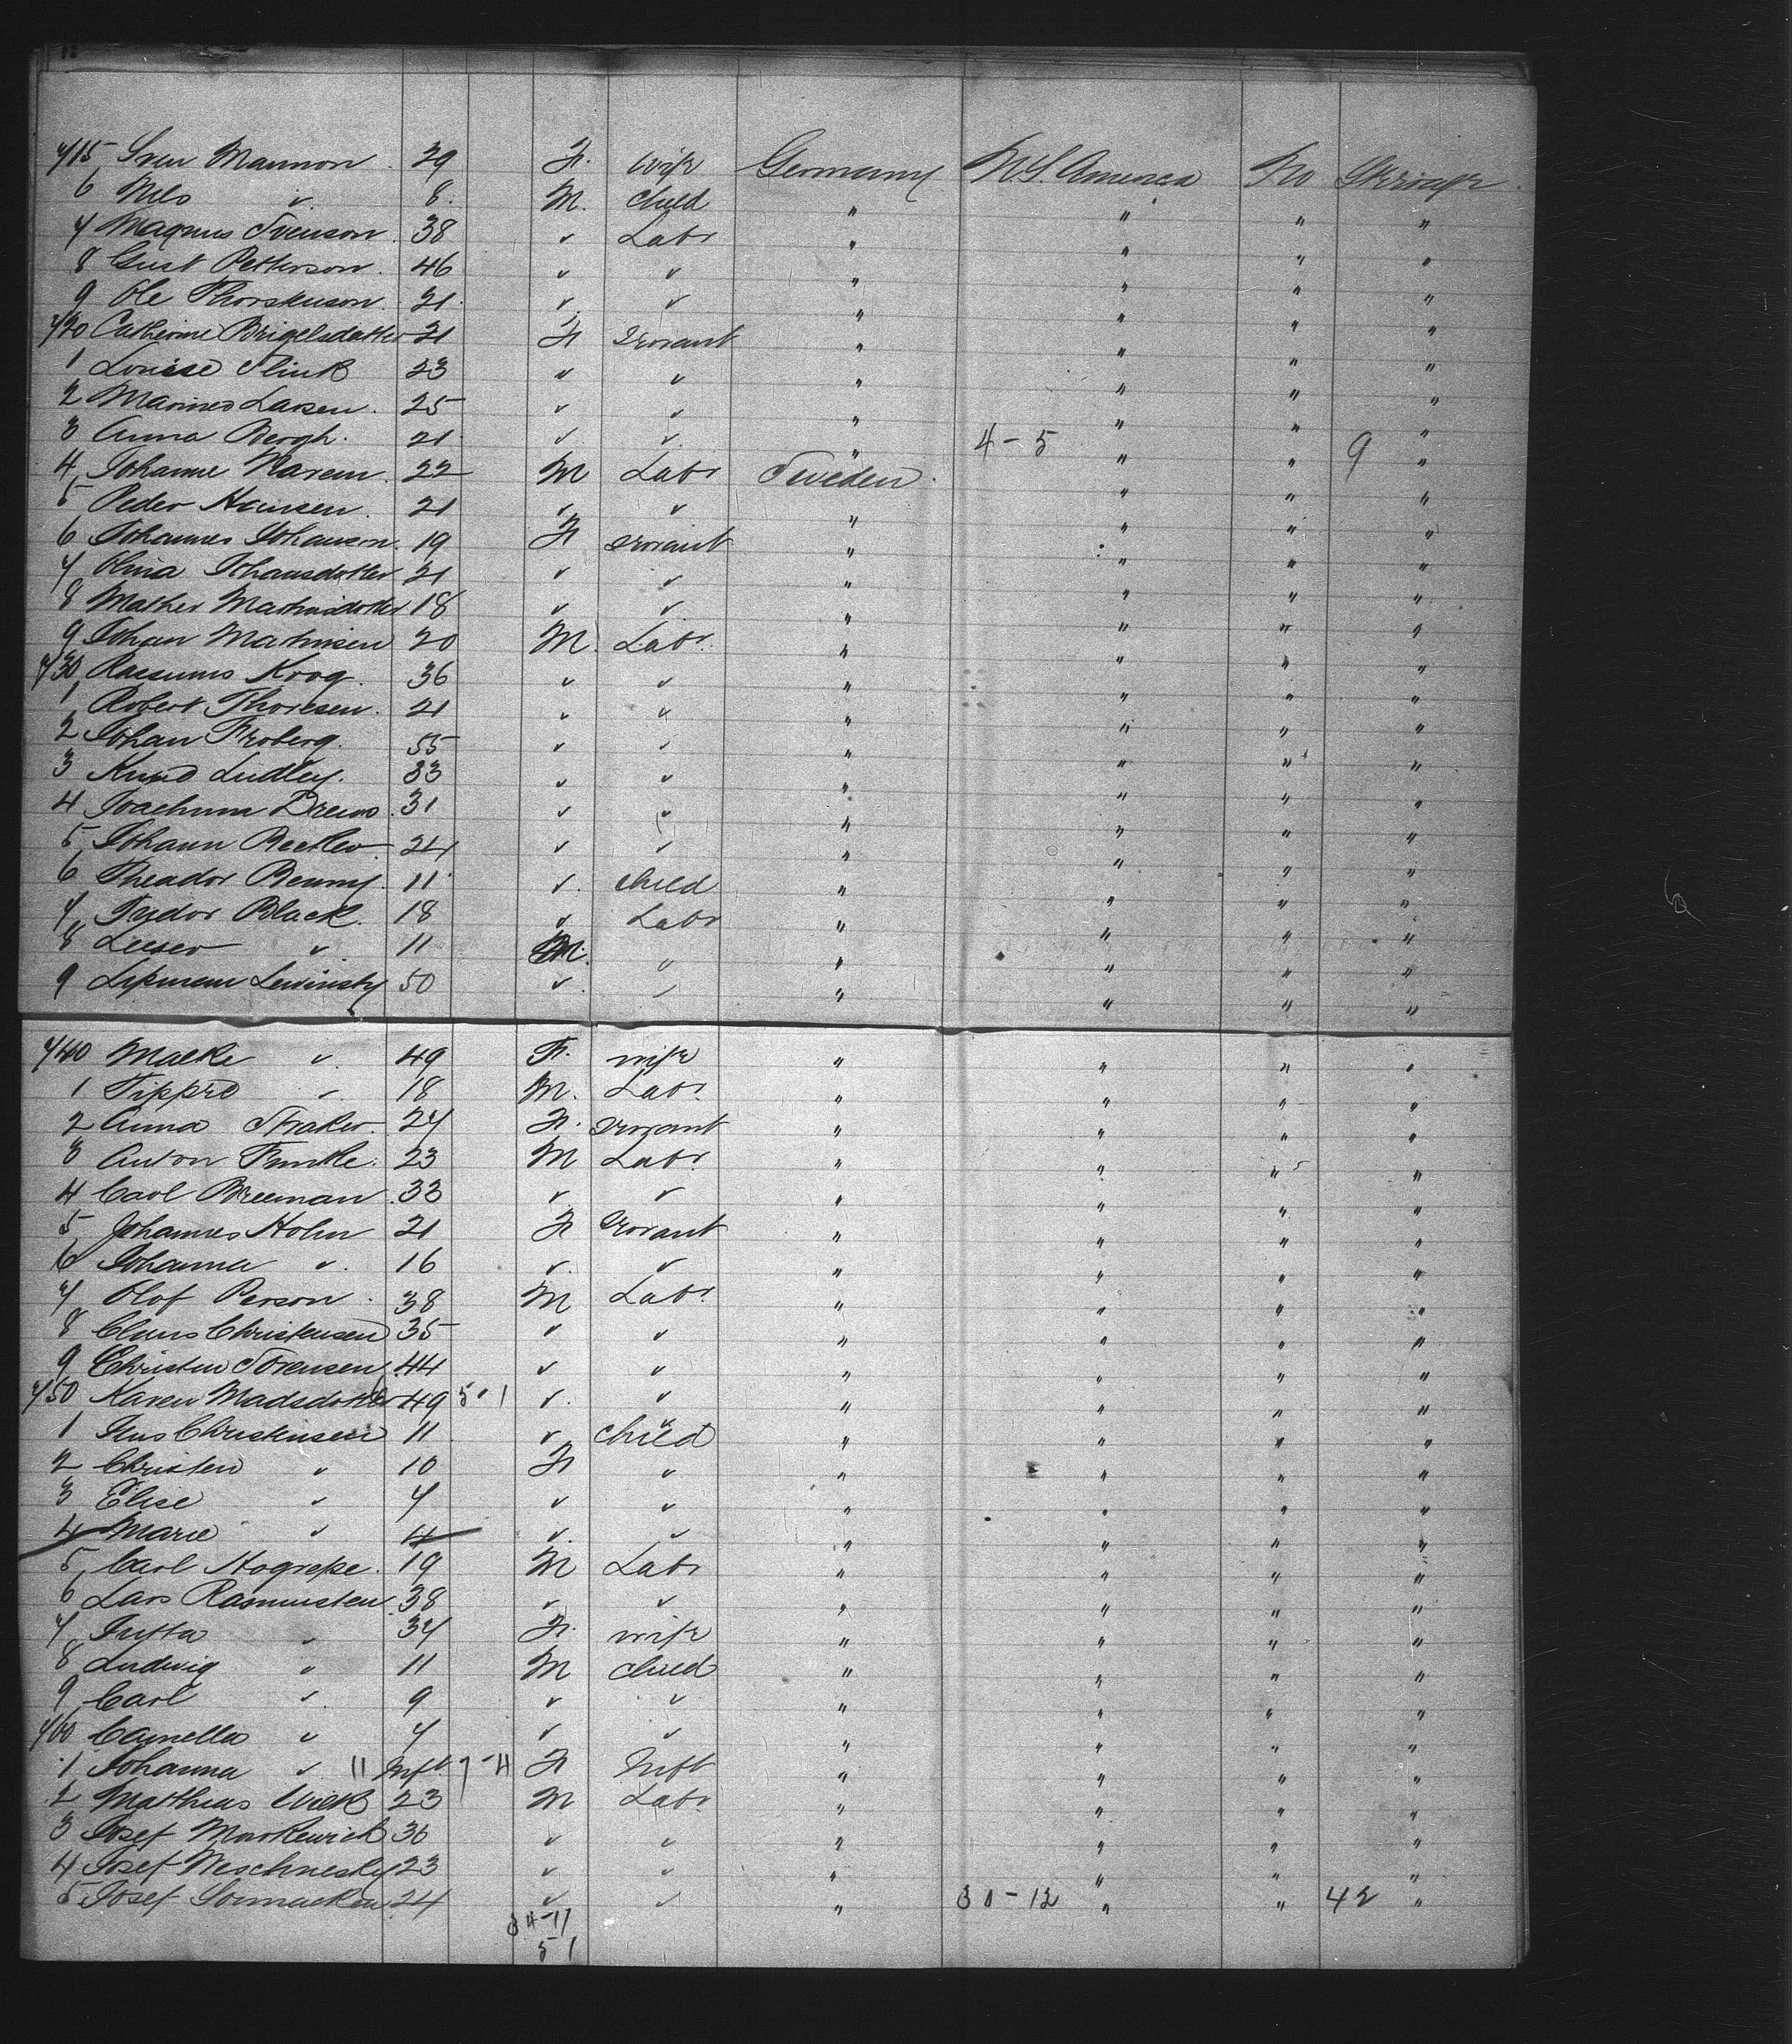 715 Sven Mannon 29 F. wife Germany U.S. America No Steerage
6 Nils " 8 M. child " " " "
7 Magnus Svenson 38 " Labr " " " "
8 Gust Petterson 46 " " " " " "
9 Ole Thorskuson 21 " " " " " "
720 Catherine Brigelsdatter 21 F Servant " " " "
1 Louise Flink 23 " " " " " "
2 Marines Larsen 25 " " " " " "
3 Anna Bergh 21 " " " 4-5 " " 9 "
4 Johanne Narem 22 M Labr Sweden " " "
5 Peder Hansen 21 " " " " " "
6 Johannes Johanson 19 F Servant " " " "
7 Olina Johansdotter 21 " " " " " "
8 Mather Mathisdotter 18 " " " " " "
9 Johan Mathisen 20 M Labr " " " "
730 Rasmus Krog 36 " " " " " "
1 Robert Thoresen 21 " " " " " "
2 Johan Froberg 55 " " " " " "
3 Knud Ludley 33 " " " " " "
4 Joachum Drews 31 " " " " " "
5 Johann Becker 24 " " " " " "
6 Theador Benny 11 " child " " " "
7 Fydor Black 18 " Labr " " " "
8 Leeser " 11 M. " " " " "
9 Lipmann Lewinsky 50 " " " " " "
740 Malke " 49 F. wife " " " "
1 Tippre " 18 M. Labr " " " "
2 Anna Straker 27 F. Servant " " " "
3 Anton Funke 23 M Labr " " " "
4 Carl Breeman 33 " " " " " "
5 Johannes Holm 21 F Servant " " " "
6 Johanna " 16 " " " " " "
7 Olof Person 38 M Labr " " " "
8 Claus Christensen 35 " " " " " "
9 Christen Sorensen 44 " " " " " "
750 Karen Madsdotter 49 5-1 " " " " " "
1 Jens Christensen 11 " child " " " "
2 Christen " 10 F " " " " "
3 Elise " 7 " " " " " "
4 Marie " 4 " " " " " "
5 Carl Hogrefe 19 M Labr " " " "
6 Lars Rasmussen 38 " " " " " "
7 Jutta " 37 F. wife " " " "
8 Ludwig " 11 M child " " " "
9 Carl " 9 " " " " " "
760 Camella " 7 " " " " " "
1 Johanna " 11 Inft 7-11 F Inft " " " "
2 Matthias Wick 23 M Labr " " " "
3 Josef Markewich 36 " " " " " "
4 Josef Weschnesky 23 " " " " " "
5 Josef 24 " " " 30-12 " " 42 "
34-17
5 1